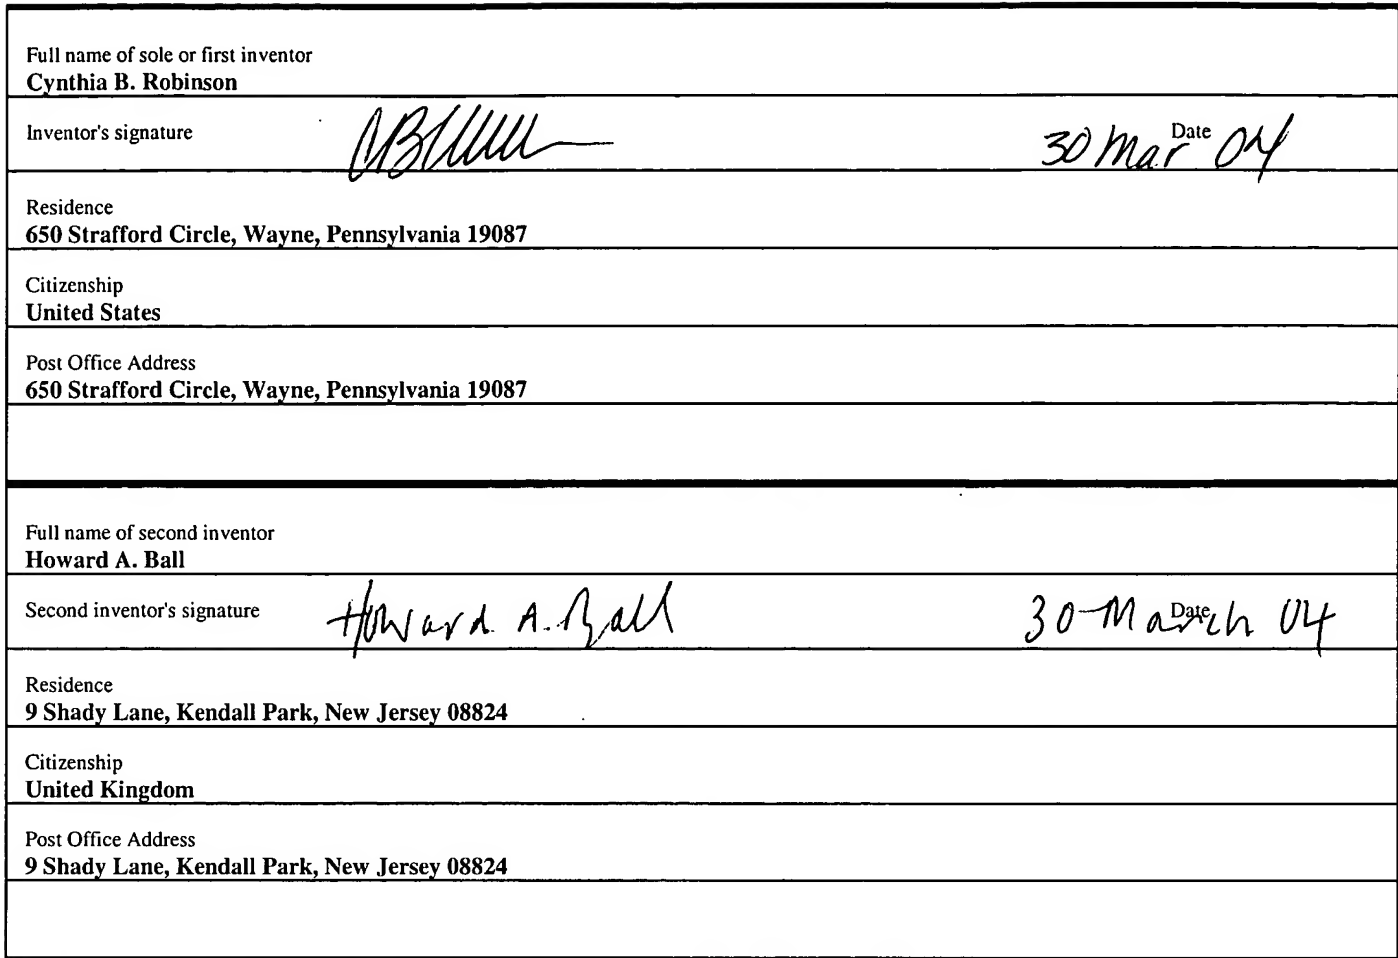 Full name of sole or first inventor
Cynthia B. Robinson
Inventor's signature
Date
30 Mar 04
Residence
650 Strafford Circle, Wayne, Pennsylvania 19087
Citizenship
United States
Post Office Address
650 Strafford Circle, Wayne, Pennsylvania 19087
Full name of second inventor
Howard A. Ball
Second inventor's signature
Howard A. Ball
Date
30 March 04
Residence
9 Shady Lane, Kendall Park, New Jersey 08824
Citizenship
United Kingdom
Post Office Address
9 Shady Lane, Kendall Park, New Jersey 08824